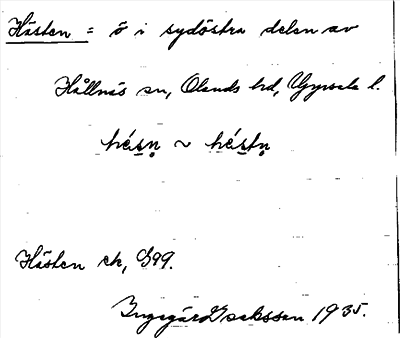 Hästen = ö i sydöstra delen av
Hållnäs sn, Olands hd, Uppsala l.
hésn̥ ~ héstn̥
Hästen ek, G99.
Ingegärd Isaksson 1935.